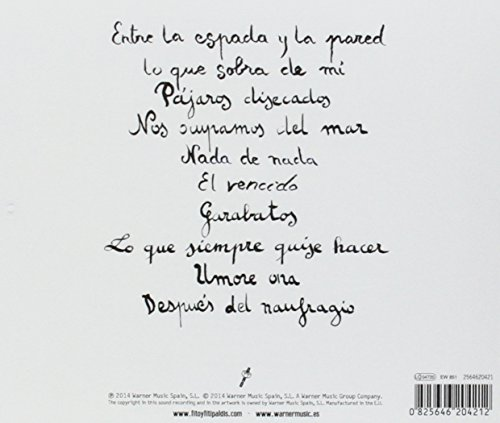 Entre la espada y la pared
lo que sobra de mí
Pájaros disecados
Nos ocupamos del mar
Nada de nada
El vencido
Garabatos
Lo que siempre quise hacer
Umore ona
Después del naufragio
℗ 2014 Warner Music Spain, S.L. © 2014 Warner Music Spain, S.L. A Warner Music Group Company.
The copyright in this sound recording and in the artwork is owned by Warner Music Spain, S.L. Manufactured in the E.U.
www.fitoyfitipaldis.com www.warnermusic.es
LC 04738 EW 851 2564620421
0 825646 204212